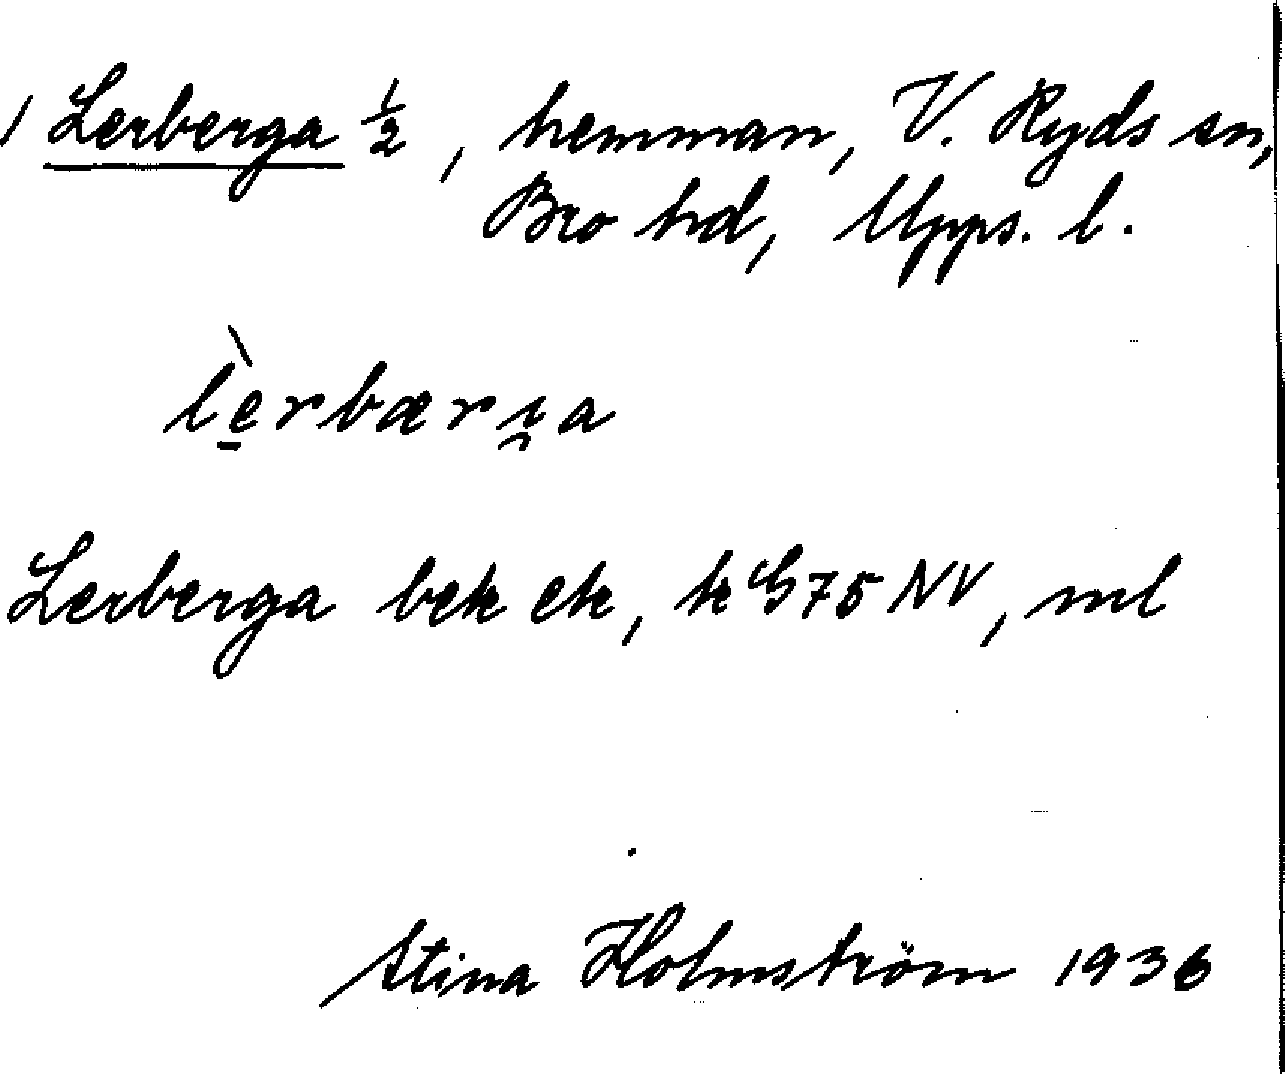 1 Lerberga ½, hemman, V. Ryds sn,
Bro hd, Upps. l.
lè̱rbærı̯a
Lerberga bek ek, k G75 NV, ml
Stina Holmström 1936